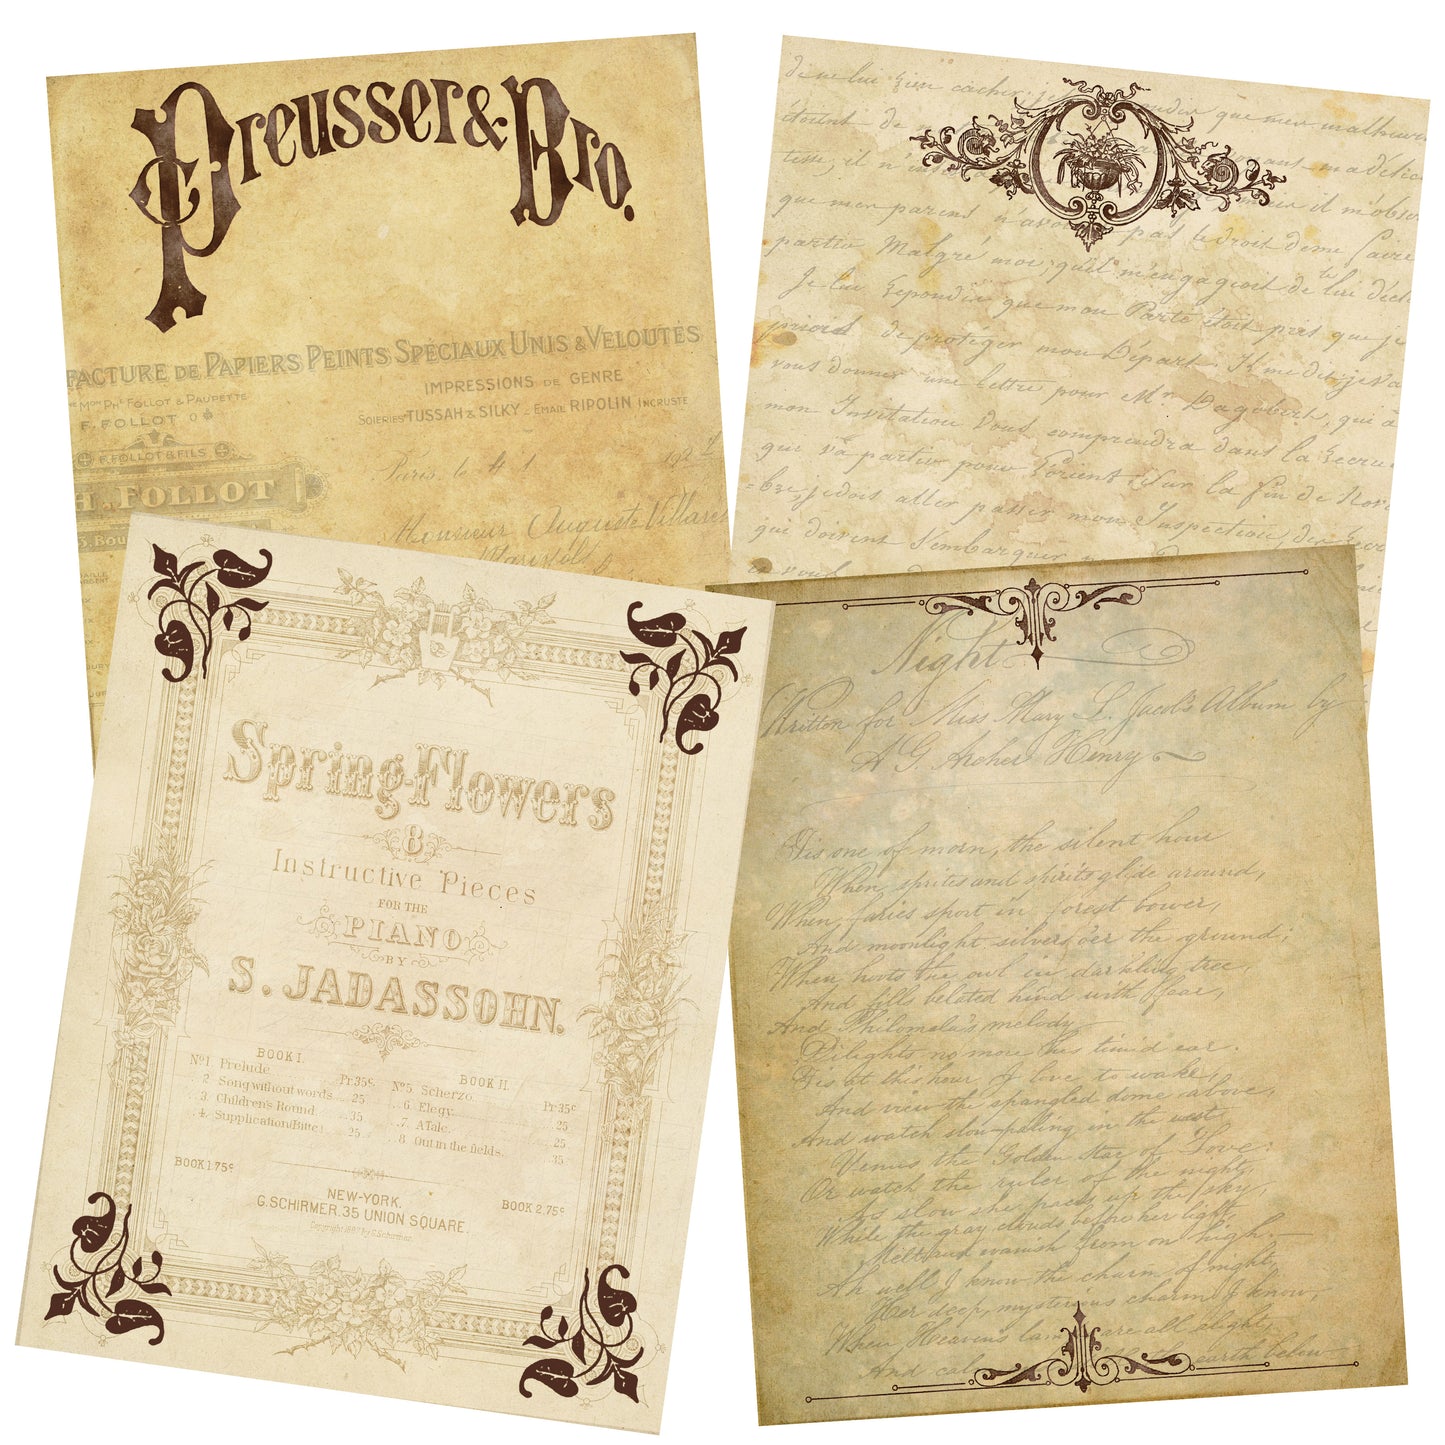 Preusser & Bro.
FACTURE DE PAPIERS PEINTS SPÉCIAUX UNIS & VELOUTÉS
IMPRESSIONS DE GENRE
NE MON PH. FOLLOT & PAUPETTE
SOIERIES TUSSAH & SILKY - EMAIL RIPOLIN INCRUSTE
F. FOLLOT
F. FOLLOT & FILS
Paris, le 41 192
H. FOLLOT
Monsieur Auguste Villar
de ne lui rien cacher; je que mes malheur
étoient de
tesse, il n'
que mes parens n'avo pas le droit de me faire
partir Malgré moi; qu'il m'engagioit de lui
Je lui repondis que mon Parti étoit pris que je
priois de protéger mon Départ. Il me dit; je va
vous donner une lettre pour Mr Dagobert, qui à
mon Invitation vous comprendra dans la recrue
que va partir pour l'orient, Sur la fin de Nov
je dois aller passer mon Inspection, des recr
que doivent S'embarquer
Spring Flowers
8
Instructive Pieces
FOR THE
PIANO
BY
S. JADASSOHN.
BOOK I. BOOK II.
No 1. Prelude Pr. 35c. No 5. Scherzo. Pr. 35c
2. Song without words. 25 6. Elegy. 25
3. Children's Round. 35 7. A Tale. 25
4. Supplication (Bitte) 25 8. Out in the fields. 35
BOOK 1.75c BOOK 2.75c
NEW-YORK.
G. SCHIRMER. 35 UNION SQUARE.
Night
Written for Miss Mary L. Jacob's Album by
A G Archer Henry
Tis one of morn, the silent hour
When sprites and spirits glide around,
When fairies sport in forest bower,
And moonlight silvers o'er the ground;
When hoots the owl in darkling tree,
And fills belated hind with fear,
And Philomela's melody
Dilights no more the timid ear.
Tis at this hour I love to wake,
And view the spangled dome above,
And watch slow-paling in the west,
Venus the Golden Star of Love:
Or watch the ruler of the night,
As slow she paces up the sky,
While the gray clouds before her light
Melt and vanish from on high.—
Ah well I know the charm of night,
Her deep, mysterious charm I know,
When Heaven's lam are all alight,
And cal the earth below